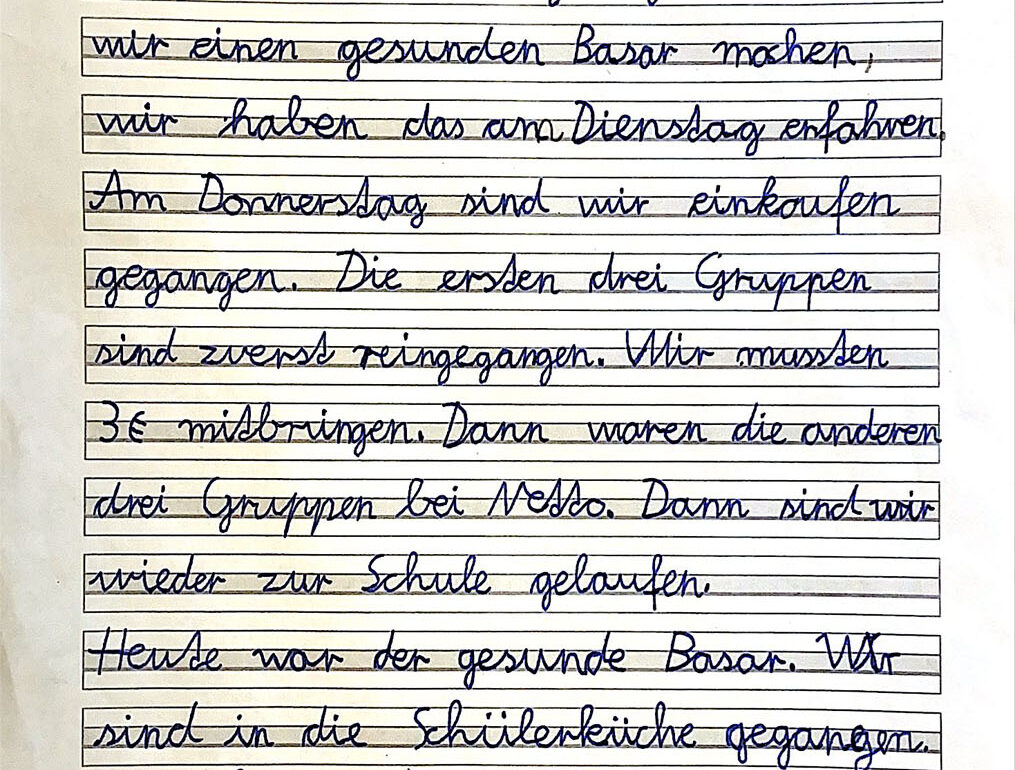 wir einen gesunden Basar machen,
wir haben das am Dienstag erfahren.
Am Donnerstag sind wir einkaufen
gegangen. Die ersten drei Gruppen
sind zuerst reingegangen. Wir mussten
3€ mitbringen. Dann waren die anderen
drei Gruppen bei Netto. Dann sind wir
wieder zur Schule gelaufen.
Heute war der gesunde Basar. Wir
sind in die Schülerküche gegangen.